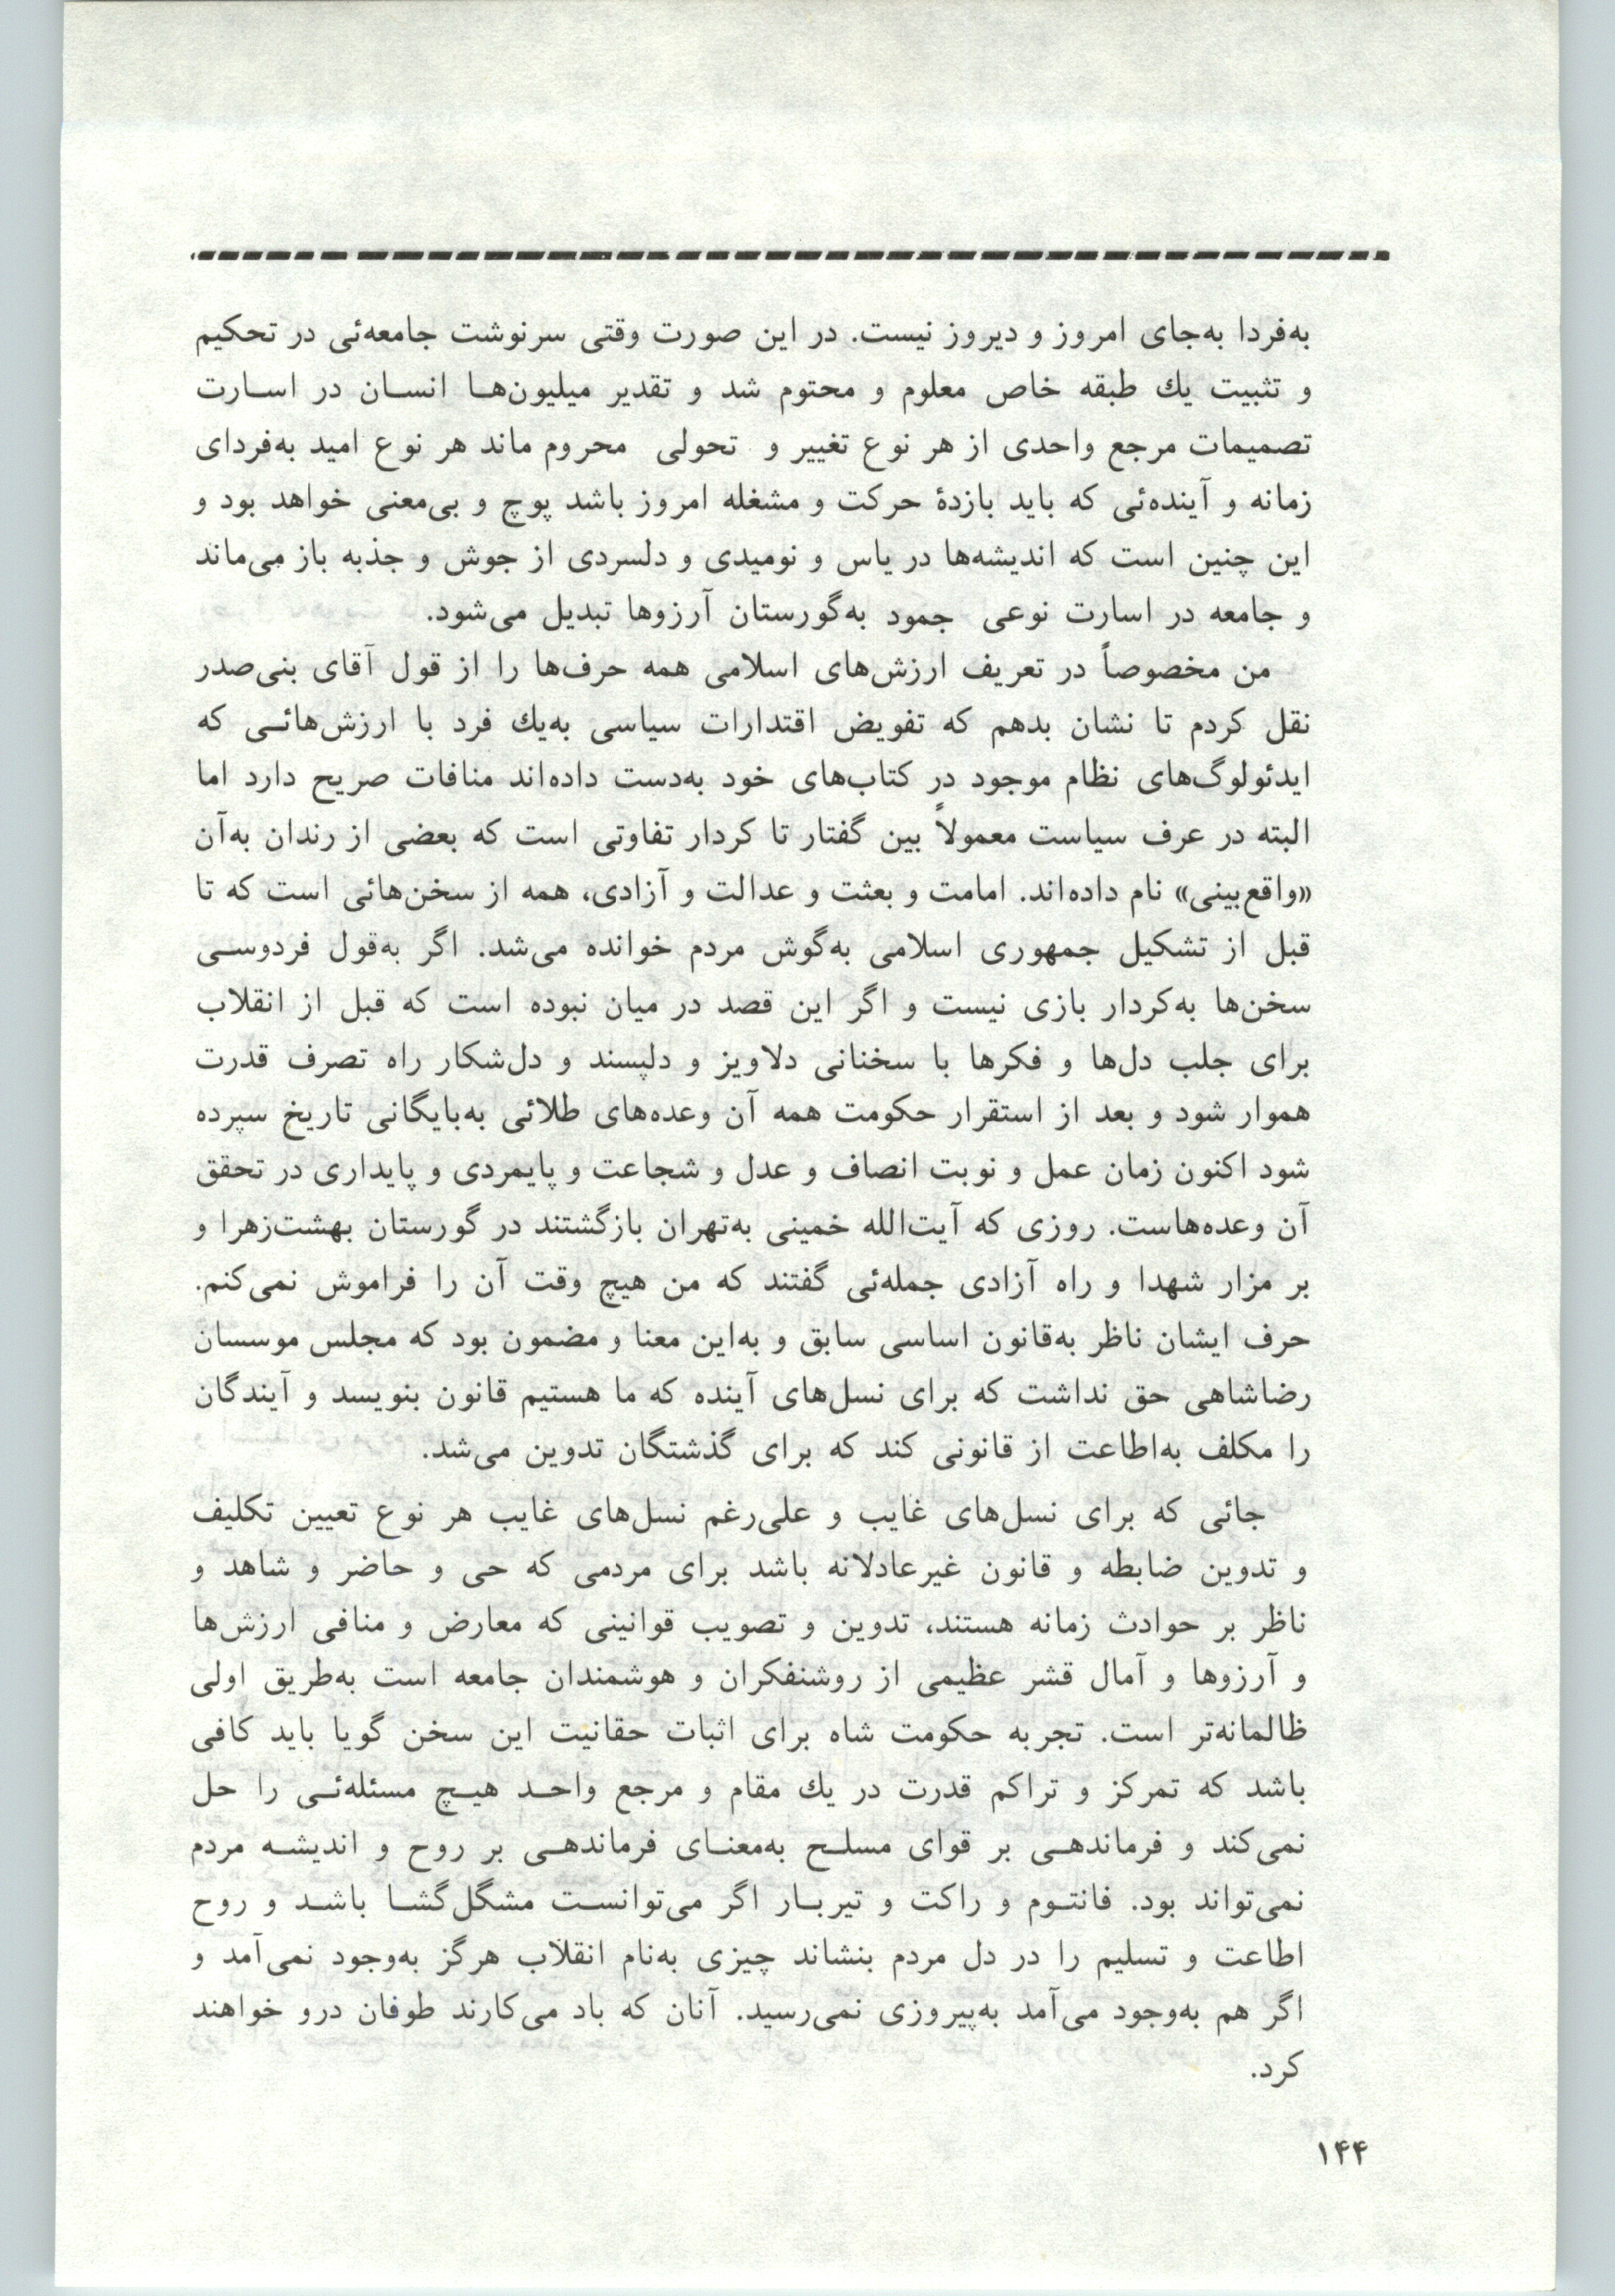 به‌فردا به‌جای امروز و دیروز نیست. در این صورت وقتی سرنوشت جامعه‌ئی در تحکیم
و تثبیت یك طبقه خاص معلوم و محتوم شد و تقدیر میلیون‌هـا انسـان در اسـارت
تصمیمات مرجع واحدی از هر نوع تغییر و تحولی محروم ماند هر نوع امید به‌فردای
زمانه و آینده‌ئی که باید بازدهٔ حرکت و مشغله امروز باشد پوچ و بی‌معنی خواهد بود و
این چنین است که اندیشه‌ها در یاس و نومیدی و دلسردی از جوش و جذبه باز می‌ماند
و جامعه در اسارت نوعی جمود به‌گورستان آرزوها تبدیل می‌شود.
من مخصوصاً در تعریف ارزش‌های اسلامی همه حرف‌ها را از قول آقای بنی‌صدر
نقل کردم تا نشان بدهم که تفویض اقتدارات سیاسی به‌یك فرد با ارزش‌هائـی که
ایدئولوگ‌های نظام موجود در کتاب‌های خود به‌دست داده‌اند منافات صریح دارد اما
البته در عرف سیاست معمولاً بین گفتار تا کردار تفاوتی است که بعضی از رندان به‌آن
«واقع‌بینی» نام داده‌اند. امامت و بعثت و عدالت و آزادی، همه از سخن‌هائی است که تا
قبل از تشکیل جمهوری اسلامی به‌گوش مردم خوانده می‌شد. اگر به‌قول فردوسـی
سخن‌ها به‌کردار بازی نیست و اگر این قصد در میان نبوده است که قبل از انقلاب
برای جلب دل‌ها و فکرها با سخنانی دلاویز و دلپسند و دل‌شکار راه تصرف قدرت
هموار شود و بعد از استقرار حکومت همه آن وعده‌های طلائی به‌بایگانی تاریخ سپرده
شود اکنون زمان عمل و نوبت انصاف و عدل و شجاعت و پایمردی و پایداری در تحقق
آن وعده‌هاست. روزی که آیت‌الله خمینی به‌تهران بازگشتند در گورستان بهشت‌زهرا و
بر مزار شهدا و راه آزادی جمله‌ئی گفتند که من هیچ وقت آن را فراموش نمی‌کنم.
حرف ایشان ناظر به‌قانون اساسی سابق و به‌این معنا و مضمون بود که مجلس موسسان
رضاشاهی حق نداشت که برای نسل‌های آینده که ما هستیم قانون بنویسد و آیندگان
را مکلف به‌اطاعت از قانونی کند که برای گذشتگان تدوین می‌شد.
جائی که برای نسل‌های غایب و علی‌رغم نسل‌های غایب هر نوع تعیین تکلیف
و تدوین ضابطه و قانون غیرعادلانه باشد برای مردمی که حی و حاضر و شاهد و
ناظر بر حوادث زمانه هستند، تدوین و تصویب قوانینی که معارض و منافی ارزش‌ها
و آرزوها و آمال قشر عظیمی از روشنفکران و هوشمندان جامعه است به‌طریق اولی
ظالمانه‌تر است. تجربه حکومت شاه برای اثبات حقانیت این سخن گویا باید کافی
باشد که تمرکز و تراکم قدرت در یك مقام و مرجع واحـد هیـچ مسئله‌ئـی را حل
نمی‌کند و فرماندهـی بر قوای مسلـح به‌معنـای فرماندهـی بر روح و اندیشـه مردم
نمی‌تواند بود. فانتـوم و راکت و تیربـار اگر می‌توانسـت مشگل‌گشـا باشـد و روح
اطاعت و تسلیم را در دل مردم بنشاند چیزی به‌نام انقلاب هرگز به‌وجود نمی‌آمد و
اگر هم به‌وجود می‌آمد به‌پیروزی نمی‌رسید. آنان که باد می‌کارند طوفان درو خواهند
کرد.
۱۴۴